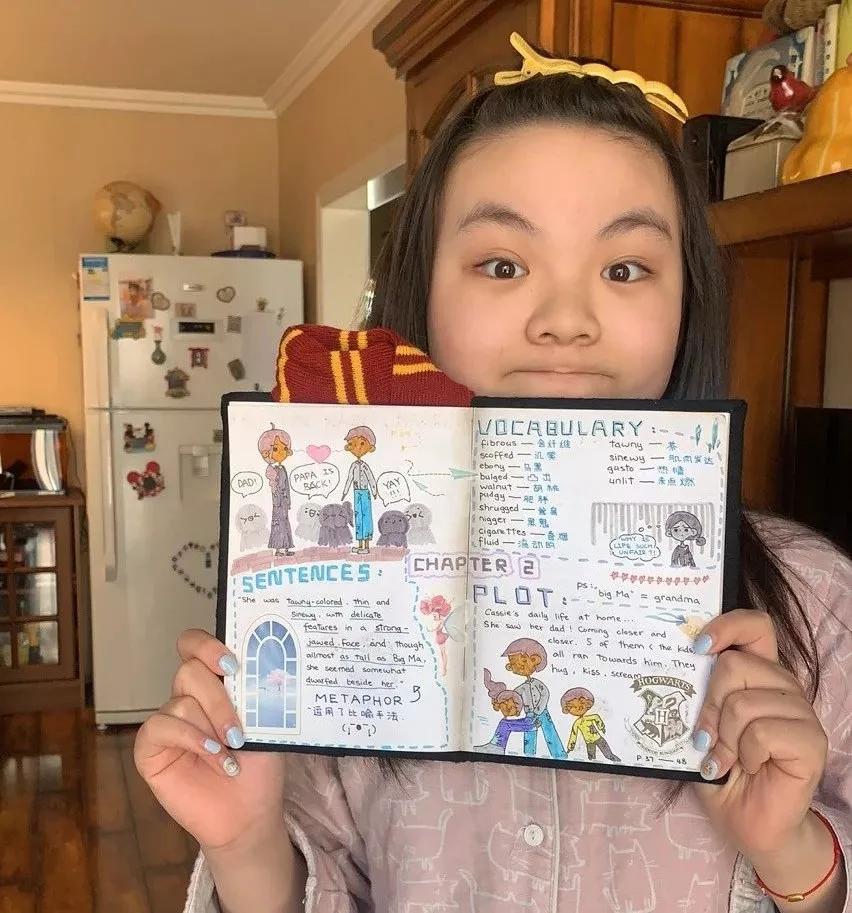 DAD!
PAPA IS
BACK!
YAY
!!!
SENTENCES:
"She was tawny-colored, thin and
sinewy, with delicate
features in a strong-
jawed face, and though
allmost as tall as Big Ma,
she seemed somewhat
dwarfed beside her."
METAPHOR
"运用了比喻手法.
CHAPTER 2
VOCABULARY:
fibrous — 含纤维
scoffed — 讥笑
ebony — 乌黑
bulged — 凸出
walnut — 胡桃
pudgy — 肥胖
shrugged — 耸肩
nigger — 黑鬼
cigarettes — 香烟
fluid — 流动的
tawny — 茶
sinewy — 肌肉发达
gusto — 热情
unlit — 未点燃
WHY IS
LIFE SUCH
UNFAIR?!
PLOT:
ps:
"big Ma" = grandma
Cassie's daily life at home...
She saw her dad! Coming closer and
closer. 5 of them (the kids
all ran towards him. They
hug, kiss, scream
HOGWARTS
P 37 — 48